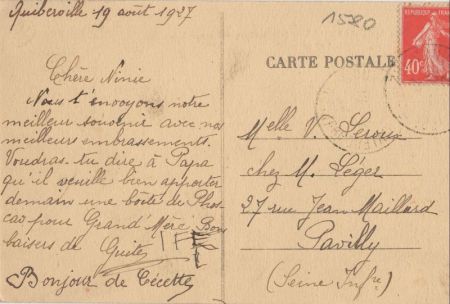 Quiberville 19 août 1927
1520
CARTE POSTALE
40
Chère Ninie
Nous t'envoyons notre
meilleur souvenir avec nos
meilleurs embrassements.
Voudras-tu dire à Papa
qu'il veuille bien apporter
demain une boîte de Phos
cao pour Grand'Mère. Bons
baisers de Guite
Bonjour de Cécette
Melle V. Leroux
chez M. Léger
27 rue Jean Maillard
Pavilly
(Seine Infre)